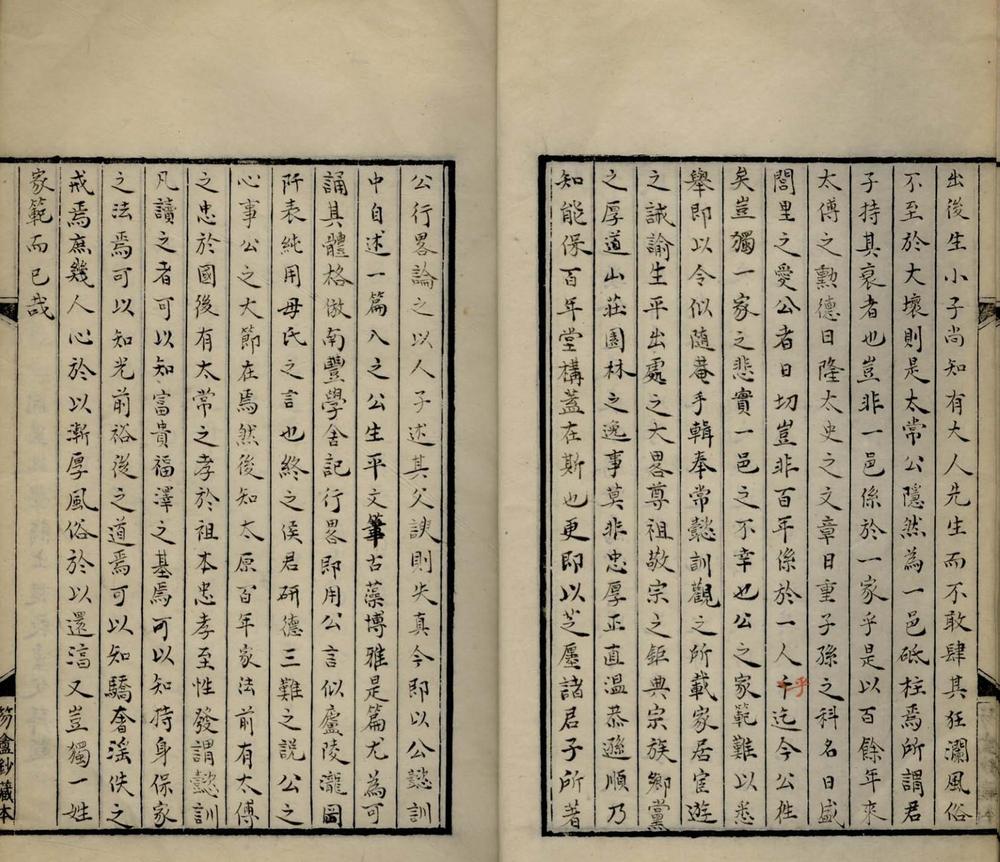 出後生小子尚知有大人先生而不敢肆其狂瀾風俗
不至於大壞則是太常公隱然為一邑砥柱焉所謂君
子持其衰者也豈非一邑係於一家乎是以百餘年來
太傅之勲德日隆太史之文章日重子孫之科名日盛
閭里之愛公者日切豈非百年係於一人乎迄今公徃
矣豈獨一家之悲實一邑之不幸也公之家範難以悉
舉即以令似隨菴手輯奉常懿訓觀之所載家居宦遊
之誠諭生平出處之大畧尊祖敬宗之鉅典宗族鄉黨
之厚道山莊園林之逸事莫非忠厚正直温恭遜順乃
知能保百年堂構蓋在斯也更即以芝廛諸君子所著
公行畧論之以人子述其父諛則失真今即以公懿訓
中自述一篇入之公生平文筆古藻博雅是篇尤為可
誦其體格倣南豐學舍記行畧即用公言似廬陵瀧岡
阡表純用母氏之言也終之侯君研德三難之説公之
心事公之大節在焉然後知太原百年家法前有太傅
之忠於國後有太常之孝於祖本忠孝至性發謂懿訓
凡讀之者可以知富貴福澤之基焉可以知持身保家
之法焉可以知光前裕後之道焉可以知驕奢滛佚之
戒焉庶幾人心於以漸厚風俗於以還湻又豈獨一姓
家範而已哉
鈔藏本